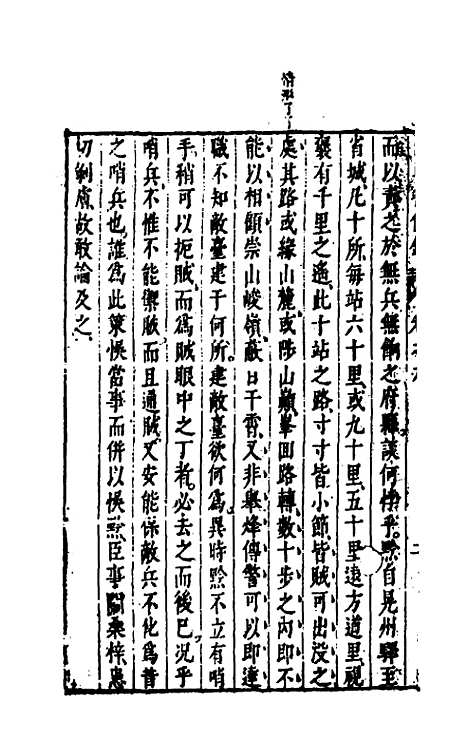 而以責之於無兵無餉之府縣議何悖乎黔自晃州驛至
省城凡十所每站六十里或九十里五十里遠方道里視
褒有千里之遙此十站之路寸寸皆小箭皆賊可出没之
處其路或緣山麓或陟山巔峯回路轉數十步之内即不
能以相顧崇山峻嶺蔽日干霄又非舉烽傳警可以即達
職不知敵臺建于何所建敵臺欲何爲異時黔不立有哨
手稍可以扼賊而爲賊眼中之丁者必去之而後已况乎
哨兵不惟不能禦賊而且通賊又安能保敵兵不化爲昔
之哨兵也誰爲此策悞當事而併以悞黔臣事關桑梓患
切剝膚故敢論及之